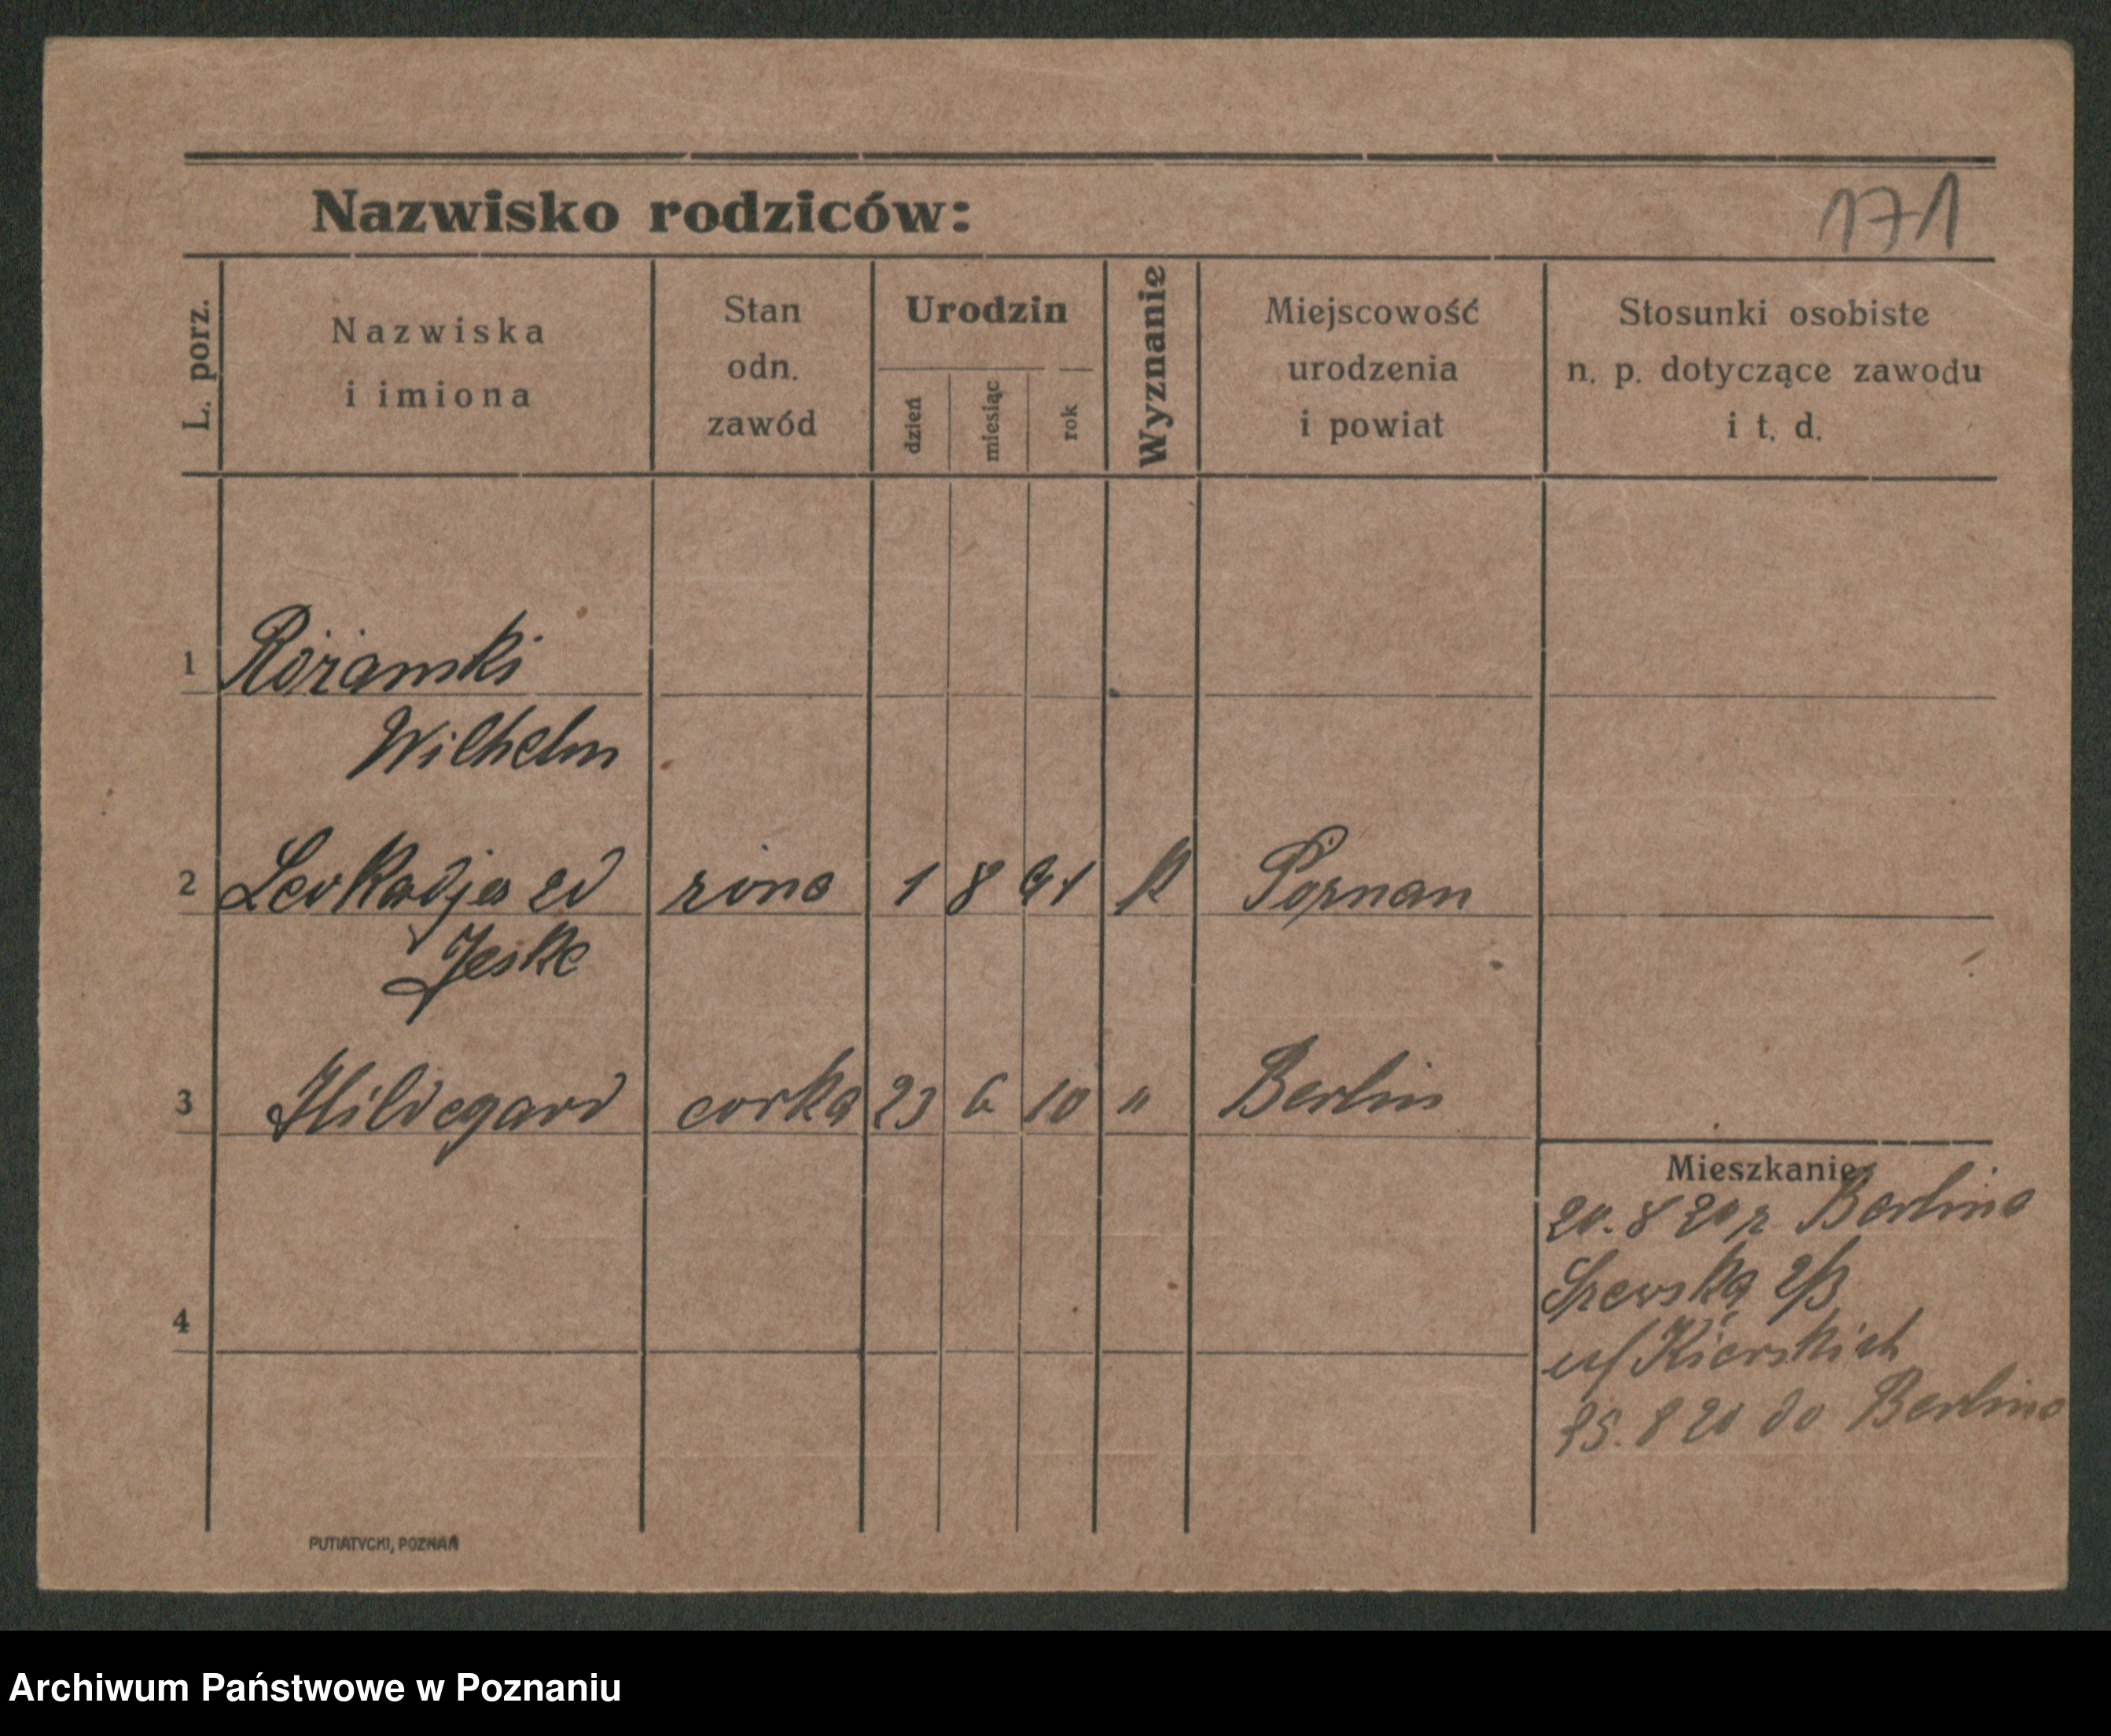 Nazwisko rodziców:
171
L. porz.
Nazwiska
i imiona
Stan
odn.
zawód
Urodzin
dzień
miesiąc
rok
Wyznanie
Miejscowość
urodzenia
i powiat
Stosunki osobiste
n. p. dotyczące zawodu
i t. d.
1 Różamski
Wilhelm
2 Leokadja zd żona 1 8 91 k Poznan
Jeske
3 Hildegard corka 23 6 10 " Berlin
Mieszkanie
20. 8 20 z Berlina
Szewska
u/ Kierskich
25. 8 20 do Berlina
4
PUTIATYCKI, POZNAŃ
Archiwum Państwowe w Poznaniu